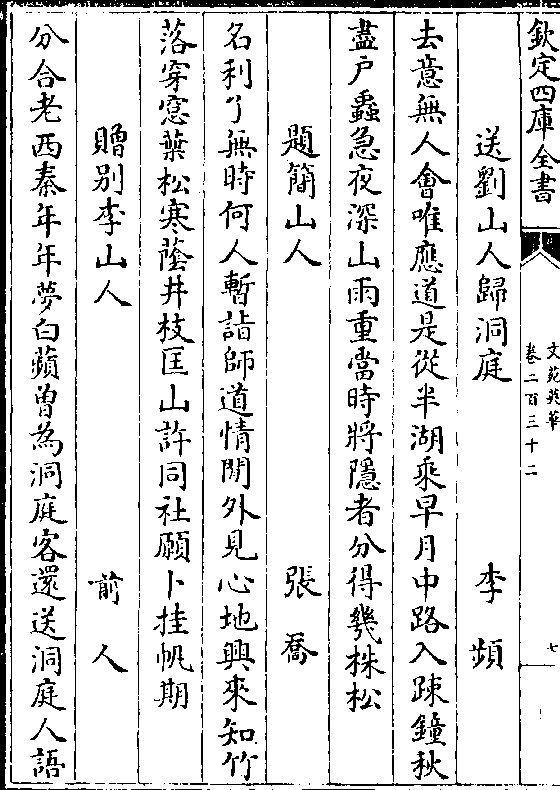 欽定四庫全書
文苑英華
卷二百三十二
七
送劉山人歸洞庭 李頻
去意無人會唯應道是從半湖乘早月中路入疎鐘秋
盡戸蟲急夜深山雨重當時將隱者分得幾株松
題簡山人 張喬
名利了無時何人暫詣師道情閒外見心地興來知竹
落穿窓葉松寒蔭井枝匡山許同社願卜挂帆期
贈别李山人 前人
分合老西秦年年夢白蘋曽為洞庭客還送洞庭人語